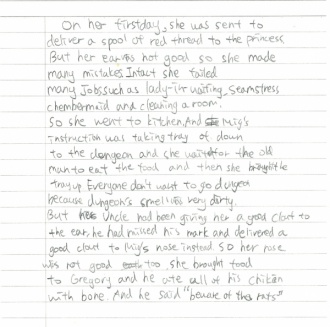 On her firstday, she was sent to
deliver a spool of red thread to the princess
But her ear was not good so she made
many mistakes. Infact she failed
many Jobs such as lady-in waiting, Seamstress
chembermaid and cleaning a room.
So she went to kitchen. And Mig's
instruction was taking tray of down
to the dungeon and she wait for the old
man to eat the food and then she bring the
tray up Everyone don't want to go dunged
because dungeon's smell is very dirty.
But Uncle had been giving her a good clout to
the ear, he had missed his mark and delivered a
good clout to Mig's nose instead. So her nose
was not good too. she brought food
to Gregory and he ate all of his chiken
with bone. And he said "beware of the rats"